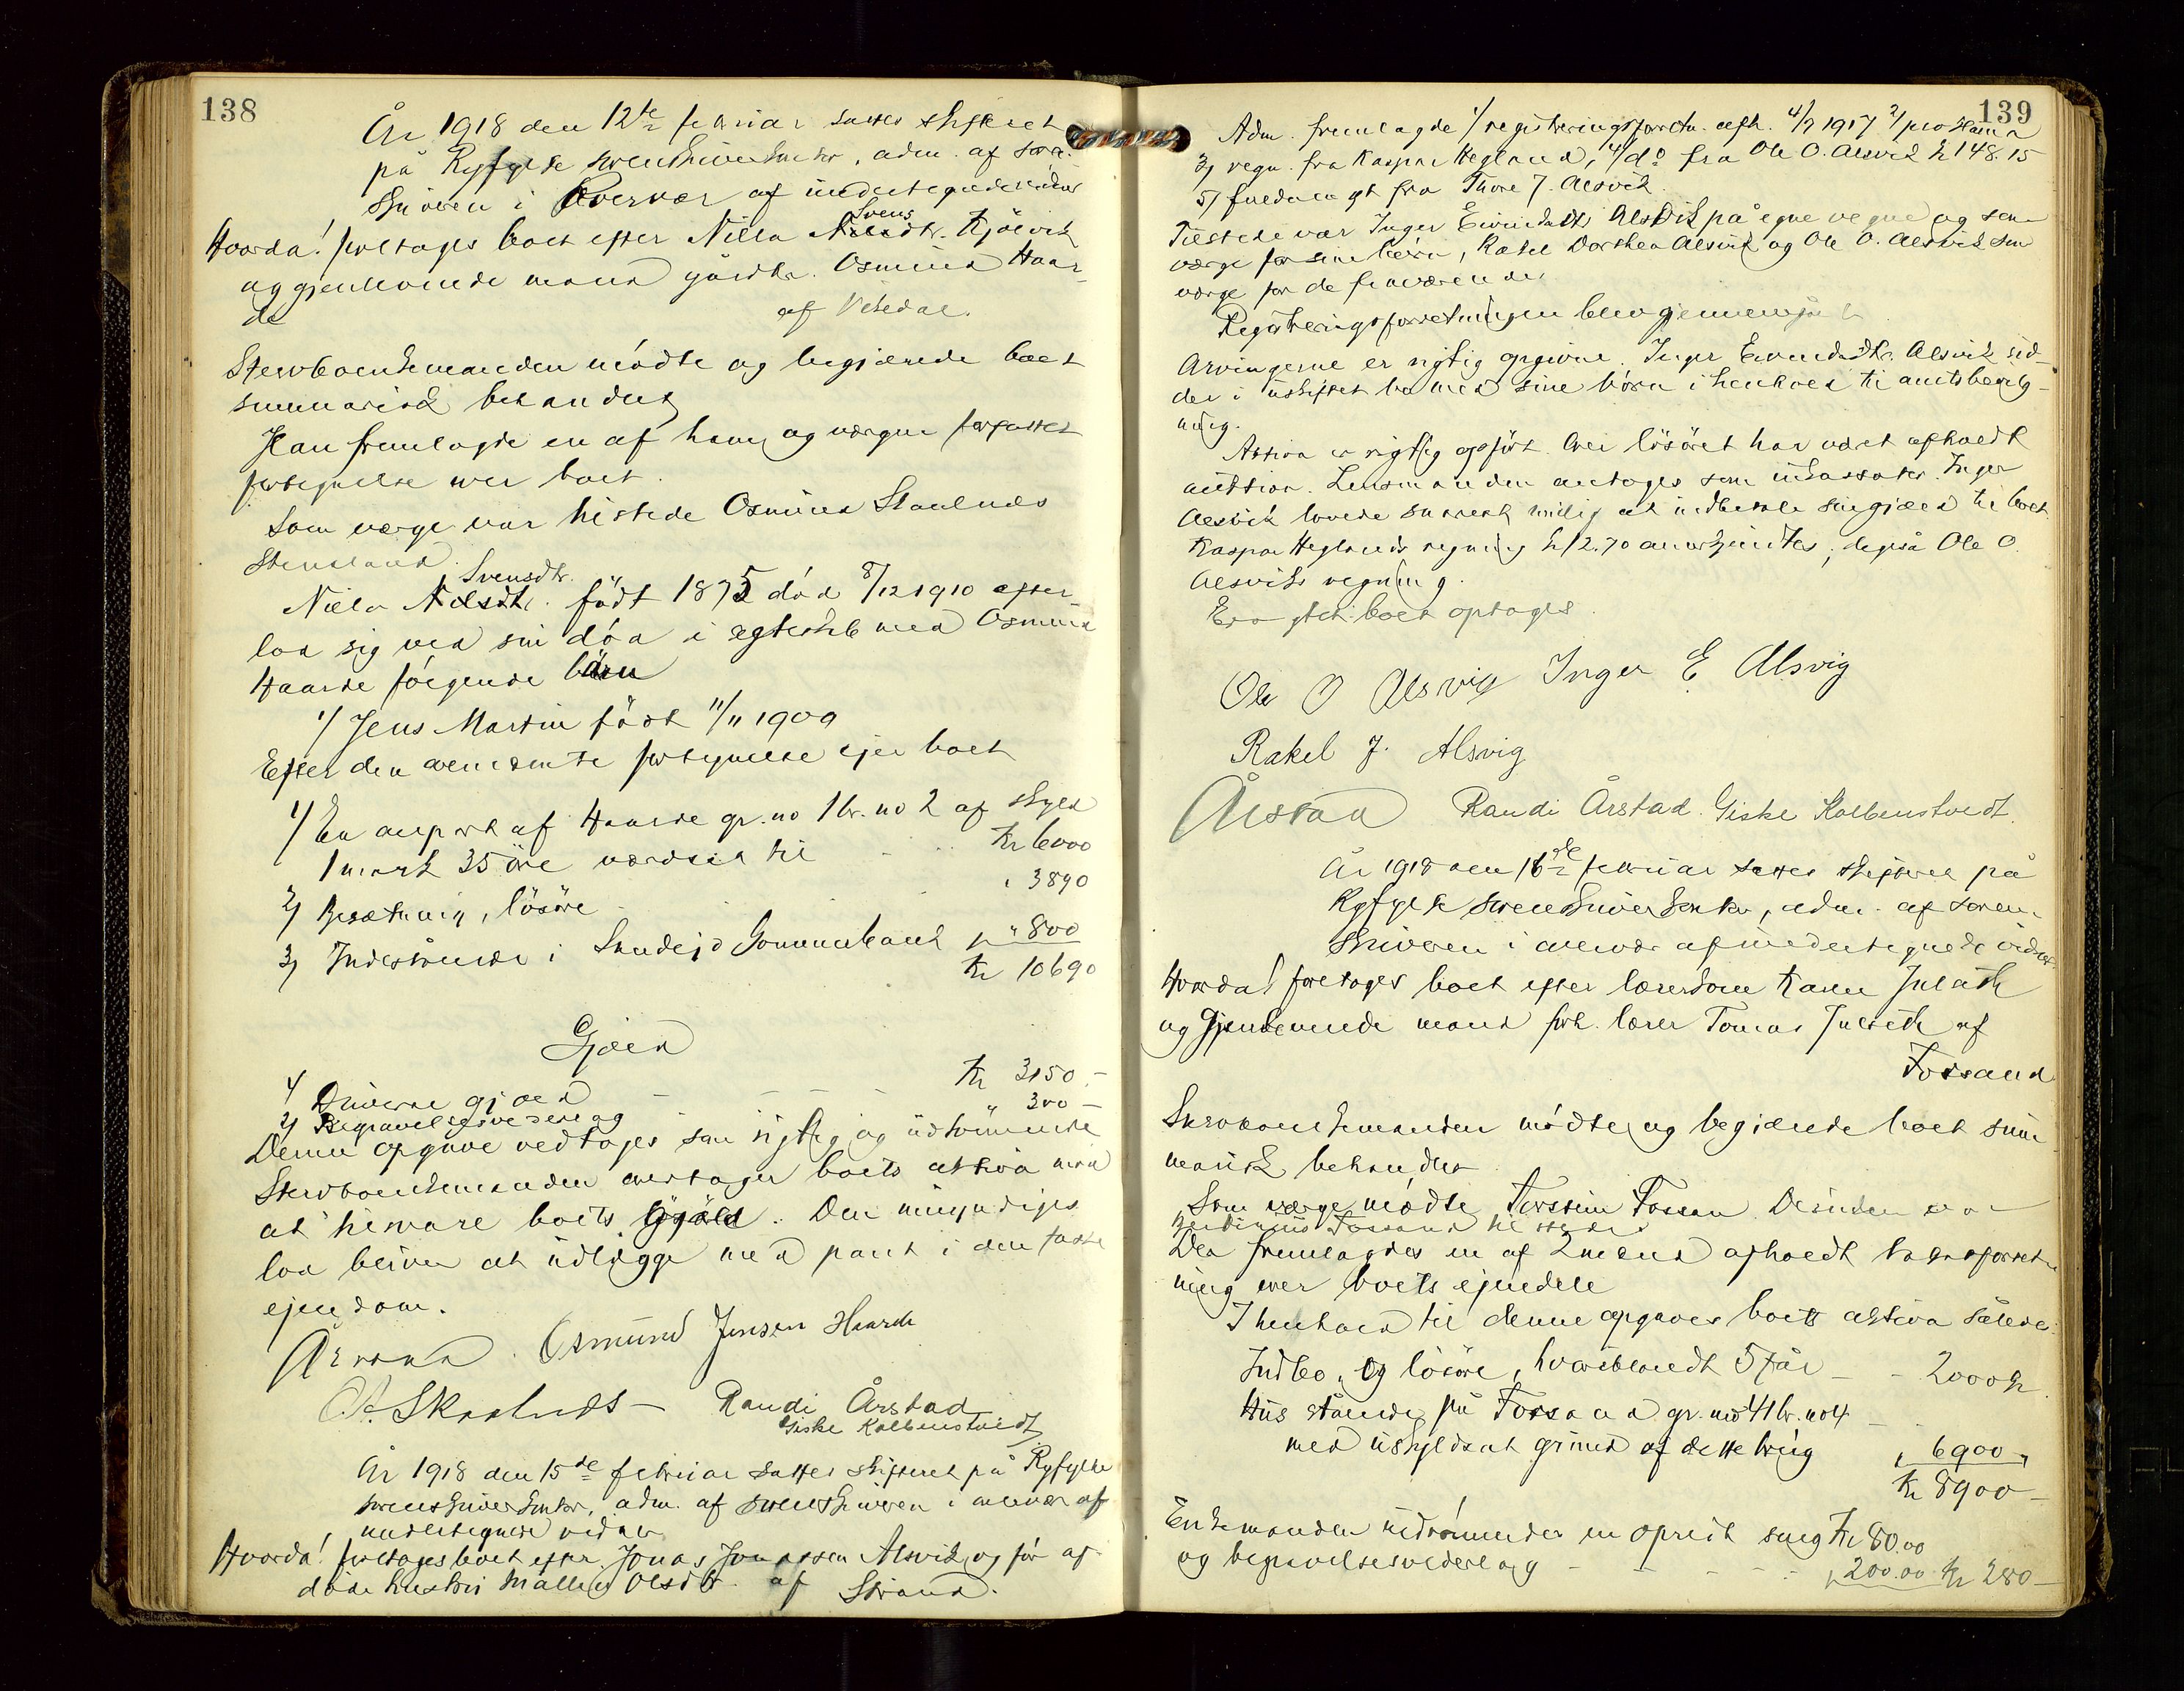 138
År 1918 den 12te februar sattes skifteret
på Ryfylke sorenskriverkontor, adm. af soren-
skriveren i overvær af undertegnede vidner
Hvorda! foretoges boet efter Niella Svens Nilsdtr. Kjölvik
og gjenlevende mand gårdbr. Osmund Haar-
de af Vikedal.
Stervboenkemanden mödte og begjærede boet
summarisk behandlet
Han fremlagde en af ham og værgen forfattet
fortegnelse over boet.
Som værge var tilstede Osmund Skaalnæs
Stensland.
Niella Nilsdtr. Svensdtr. födt 1875 död 8/12 1910 efter-
lod sig ved sin död i ægteskab med Osmund
Haarde fölgende börn
1/ Jens Martin födt 11/11 1909
Efter den ovennævnte fortegnelse ejer boet
1/ En anpart af Haarde gr. no 1 br. no 2 af skyld
1 mark 35 öre værdsat til - - - Kr 6000
2/ Besætning, lösöre - - " 3890
3/ Indestående i Sandejd Kommunebank " 800
Kr 10690
Gjæld
1/ Diverse gjæld - - - Kr 3150.-
2/ Begravelsesvederlag " 300 -
Denne opgave vedtages som rigtig og udtömmende
Stervboenkemanden overtager boets aktiva mod
at tilsvare boets gjæld. Den umyndiges
lod bliver at udlægge med pant i den faste
ejendom.
Årstad. Osmund Jensen Haarde
O. Skaalnæs - Randi Årstad
Giske Kolbenstvedt
År 1918 den 15de februar sattes skifteret på Ryfylke
sorenskriverkontor, adm. af sorenskriveren i overvær af
undertegnede vidner
Hvorda! foretoges boet efter Jonas Jonassen Alsvik og för af-
döde hustru Malli Olsdtr. af Strand.
139
Adm. fremlagde 1/ registreringsforretn. afh. 4/7 1917 2/ proklama
3/ regn. fra Kaspar Hegland, 4/ do fra Ole O. Alsvik kr 148.15
5/ fra Thore J. Alsvik.
Tilstede var Inger Eivindsdtr Alsvik på egne vegne og som
værge for sine börn, Rakel Dorthea Alsvik og Ole O. Alsvik som
værge for de fraværende.
Registreringsforretningen blev gjennemgået
Arvingerne er rigtig opgivne. Inger Eivindsdtr. Alsvik sid-
der i uskiftet bo med sine börn i henhold til amtsbevilg-
ning.
Aktiva er rigtig opfört. Over lösöret har været afholdt
auktion. Lensmanden antages som inkassator. Inger
Alsvik lovede snarest mulig at indbetale sin gjæld til boet.
Kaspar Heglands regning kr 12.70 anerkjendtes, ligeså Ole O.
Alsviks regning.
boet optages.
Ole O Alsvig Inger E Alsvig
Rakel J. Alsvig
Årstad Randi Årstad. Giske Kolbenstvedt.
År 1918 den 16de februar sattes skifteret på
Ryfylke sorenskriverkontor, adm. af soren-
skriveren i overvær af undertegnede vidner
Hvorda! foretoges boet efter lærerkone Karen Julseth
og gjenlevende mand forh. lærer Tomas Julseth af
Fossand
Stervboenkemanden mödte og begjærede boet sum
marisk behandlet
Som værge mödte Torstein Fossan. Desuden var
Fossand tilstede.
Der fremlagdes en af 2 mænd afholdt takstforret-
ning over boets ejendele
I henhold til denne opgaves boets aktiva således
Indbo og lösöre, hvoriblandt 5 får - - 2000 kr.
Hus stående på Fossand gr. no 41 br. no 4
med uskyldsat grund af dette brug " 6900 "
Kr 8900 -
Enkemanden udtömmede en opredt seng Kr 80.00
og begravelsesvederlag - - - - " 200.00 Kr 280 -